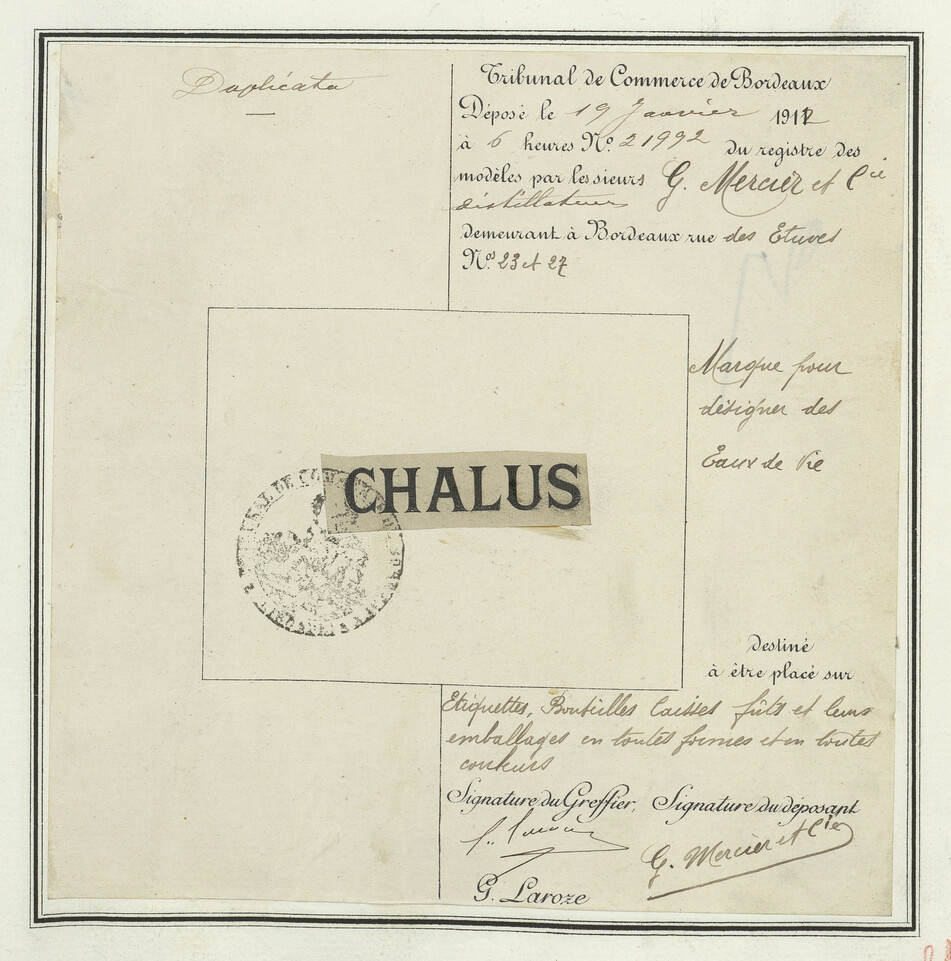 Duplicata
Tribunal de Commerce de Bordeaux
Déposé le 19 Janvier 1912
à 6 heures Nº. 21992 du registre des
modèles par les sieurs G. Mercier et Cie
distillateurs
demeurant à Bordeaux rue des Etuves
Nos. 23 et 27
Marque pour
désigner des
Eaux de Vie
CHALUS
destiné
à être placé sur
Etiquettes, Bouteilles Caisses fûts et leurs
emballages en toutes formes et en toutes
couleurs
Signature du Greffier, Signature du déposant
G. Mercier et Cie
G. Laroze